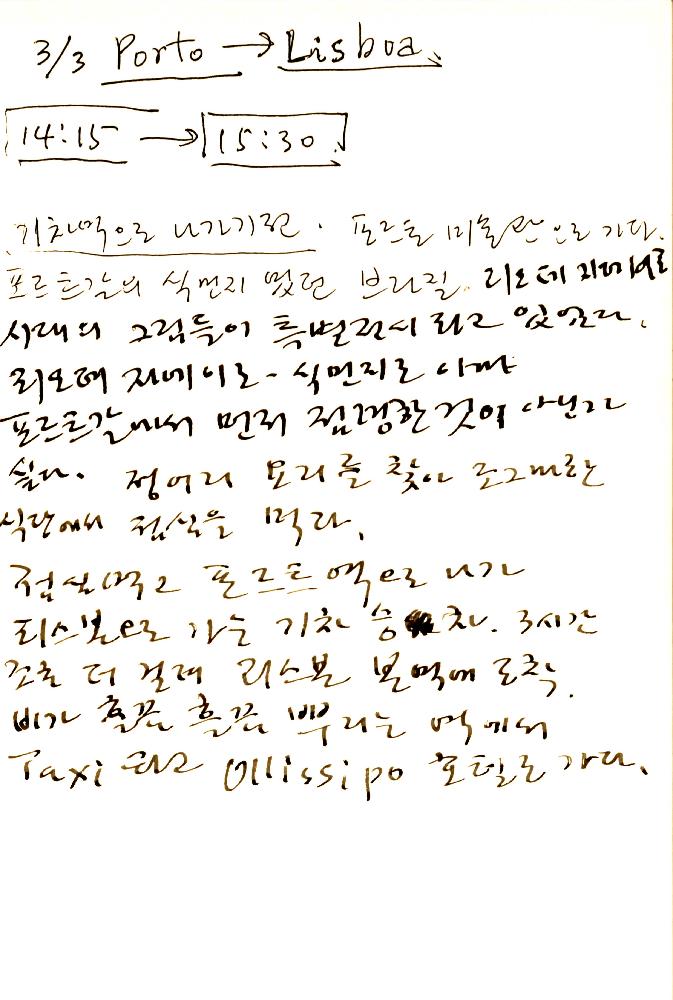 3/3 Porto → Lisboa
14:15 → 15:30
기차역으로 나가기전. 포르토 미술관으로 가다.
포르트갈의 식민지 였던 브라질. 리오데 자네이로
시대의 그림들이 특별전시 되고 있었다.
리오데 자네이로 - 식민지로 아마
포르트갈에서 먼저 점령한것이 아닌가
싶다. 정어리 요리를 찾아 조그마한
식당에서 점심을 먹다.
점심먹고 포르트역으로 나가
리스본으로 가는 기차 승차. 3시간
조금 더 걸려 리스본 본역에 도착.
비가 흩끔 흩끔 뿌리는 역에서
Taxi 타고 Ollissipo 호텔로 가다.